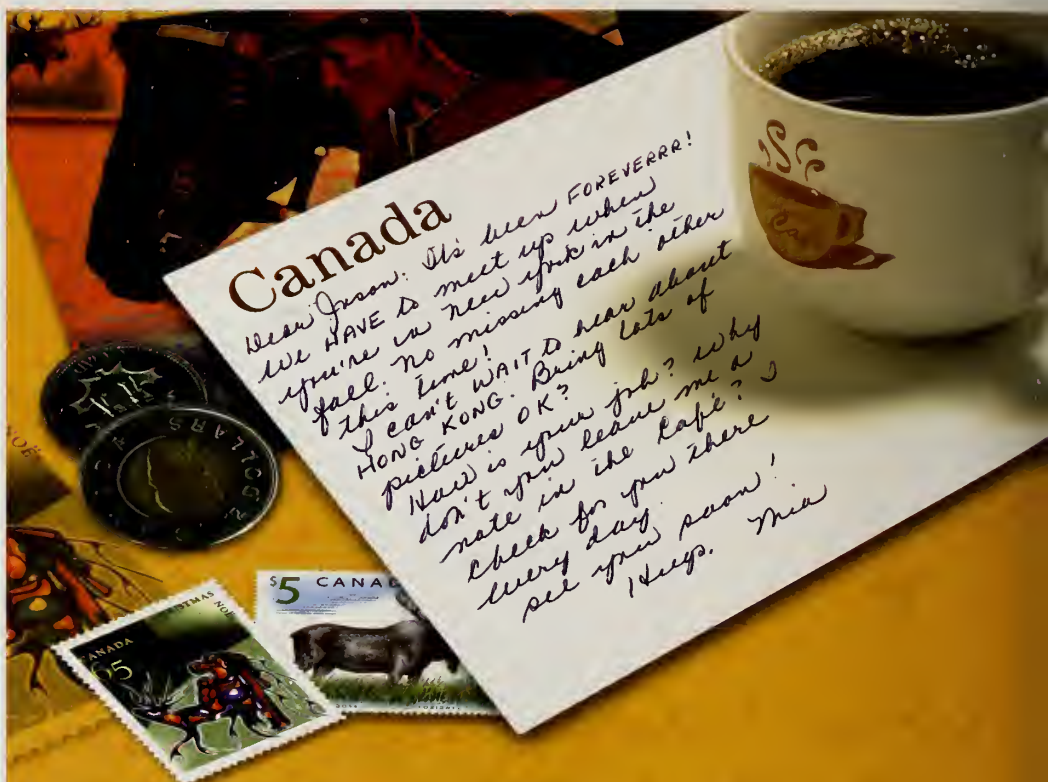 Canada
Dear Jason: It's been FOREVERRR!
We HAVE to meet up when
you're in New York in the
fall. No missing each other
this time!
I can't WAIT to hear about
HONG KONG. Bring lots of
pictures OK?
How is your job? Why
don't you leave me a
note in the Café? I
check for you there
every day.
See you soon!
Hugs. Mia
DOLLARS
NOËL
CANADA
65
CHRISTMAS NOË
$5 CANAD